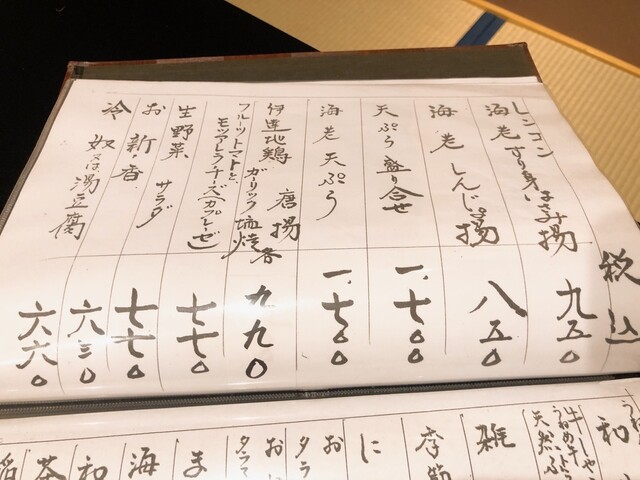 税込
レンコン
海老すり身はさみ揚
九五〇
海老しんじょ揚
八五〇
天ぷら盛り合せ
一、七〇〇
海老天ぷら
一、七〇〇
伊達地鶏 唐揚
ガーリック塩焼 各
九九〇
フルーツトマトと
モッツアレラチーズ(カプレーゼ)
七七〇
生野菜 サラダ
七七〇
お新香
六三〇
冷奴又は湯豆腐
六六〇
和
天然ふ
雑
季節
に
お
タラ
お
ま
海
和
茶
稲